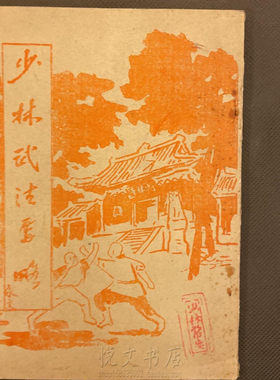 少林武法要略
悦文书店